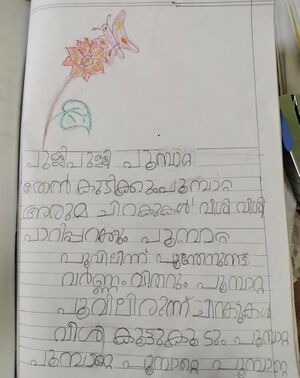 പുള്ളിപുള്ളി പൂമ്പാറ്റ
തേൻ കുടിക്കും പൂമ്പാറ്റ
അരുമ ചിറകുകൾ വീശി വീശി
പാറിപ്പറക്കും പൂമ്പാറ്റ
പൂവിലിന്ന് പൂന്തേനുണ്ട്
വർണ്ണം വിതറും പൂമ്പാറ്റ
പൂവിലിരുന്ന് ചിറകുകൾ
വീശി കൂട്ടുകൂടും പൂമ്പാറ്റ
പൂമ്പാറ്റെ പൂമ്പാറ്റെ പൂമ്പാറ്റെ